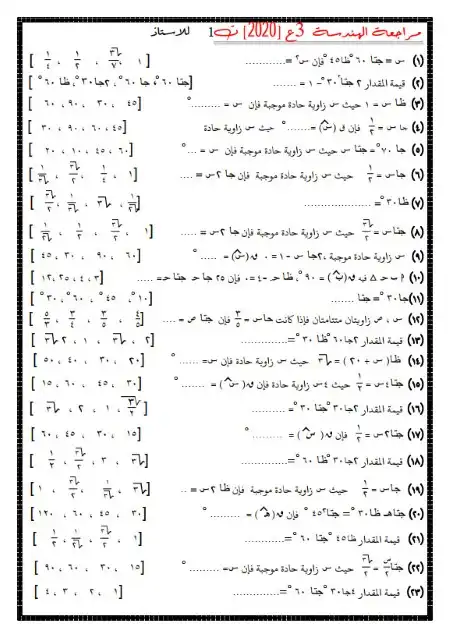 مراجعة الهندسة 3ع [2020] ت1 للاستاذ
(١) س = جتا ٦٠° ظا٤٥° فإن س٢ = ............ [ ١ ، √٣/٢ ، ١/٢ ، ١/٤ ]
(٢) قيمة المقدار ٢ جتا٢ ٣٠° – ١ = ....... [جتا ٦٠°، جا ٦٠°، ٢جا ٣٠°، ظا ٦٠°]
(٣) ظا س = ١ حيث س زاوية حادة موجبة فإن س = .........° [ ٤٥ ، ٣٠ ، ٩٠ ، ٦٠ ]
(٤) جا س = ١/٢ فإن ق (س) = .......° حيث س زاوية حادة [٤٥ ، ٦٠ ، ٩٠ ، ٣٠ ]
(٥) جا ٧٠° = جتا س حيث س زاوية حادة موجبة فإن س = ...° [ ٦٠ ، ٤٥ ، ١٠ ، ٢٠ ]
(٦) جاس = ١/٢ حيث س زاوية حادة موجبة فإن جا ٢س = ....
(٧) ظا ٣٠° = ....................
(٨) جتاس = √٣/٢ حيث س زاوية حادة موجبة فإن جا ٢س = .....
(٩) س زاوية حادة موجبة ،٢جا س – ١ = ٠ فإن ق(س) = ..... ° [ ٦٠ ، ٩٠ ، ٣٠ ، ٤٥ ]
(١٠) ق(ب) = ٩٠° ، فإن ٢٥ جا حـ جتا حـ= ..... [ ٤، ٣ ، ٢٥، ١٢ ]
(١١)جا ٣٠° = جتا ....... [ ١٠°، ٤٥°، ٦٠°، ٣٠° ]
(١٢) س ، ص زاويتان متتامتان فإذا كانت جاس = ٣/٥ فإن جتا ص = ....
(١٣) قيمة المقدار ٢جا ٦٠° ظا ٣٠° =............. [ ٢ ، √٣ ، ١ ، ٢√٣ ]
(١٤) ظا( س + ٢٠ ) = √٣ حيث س زاوية حادة فإن س= ...... ° [ ٢٠ ، ٣٠ ، ٤٠ ، ٥٠ ]
(١٥) جتا٤س = ١/٢ حيث ٤س زاوية حادة فإن ق( س ) = ....... ° [ ٣٠ ، ٤٥ ، ٦٠ ، ١٥ ]
(١٦) قيمة المقدار ٢جا ٣٠° جتا ٣٠° = .......... [ √٣/٢ ، ١ ، ٢ ، √٣ ]
(١٧) جتا٢س = ١/٢ فإن ق( س ) = ......... ° [ ١٥ ، ٣٠ ، ٤٥ ، ٦٠ ]
(١٨) قيمة المقدار ٢جا ٣٠° ظا ٦٠° =............. [ √٣ ، ٣ ، √٣/٢ ، ١/٢ ]
(١٩) جاس = ١/٢ حيث س زاوية حادة موجبة فإن ظا ٢س = ..
(٢٠) جتاهـ ظا ٣٠° = جتا٢ ٤٥° فإن ق( هـ ) = .......... ° [ ٣٠ ، ٤٥ ، ٦٠ ، ١٢٠ ]
(٢١) قيمة المقدار ظا٤٥° جتا ٦٠° =.............
(٢٢) جتا س/٢ = √٣/٢ حيث س زاوية حادة موجبة فإن س= ......... ° [ ١٥ ، ٣٠ ، ٦٠ ، ٩٠ ]
(٢٣) قيمة المقدار ٤جا ٣٠° جتا ٦٠° =.............. [ ١ ، ٢ ، ٣ ، ٤ ]